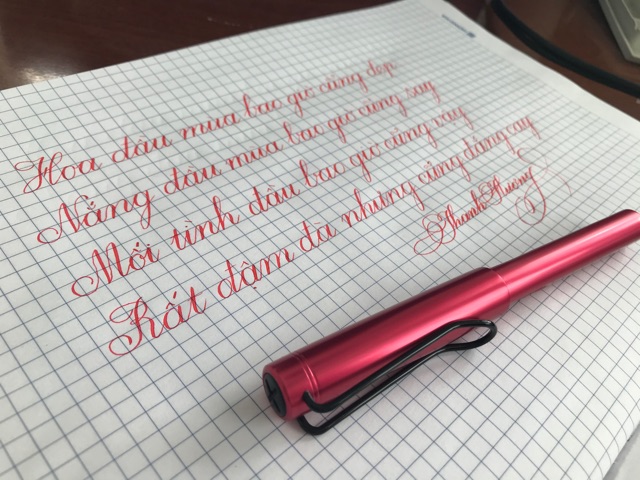 Hoa đầu mùa bao giờ cũng đẹp
Nắng đầu mùa bao giờ cũng say
Mối tình đầu bao giờ cũng vậy
Rất đậm đà nhưng cũng đắng cay
Thanh Hương